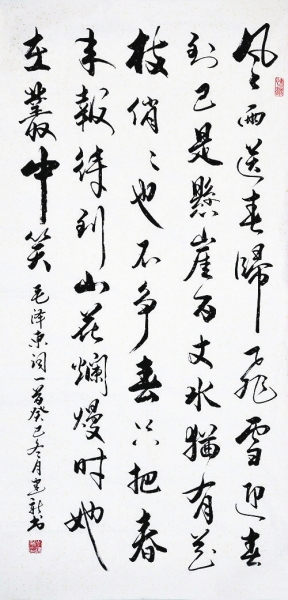 風雨送春歸飛雪迎春
到已是懸崖百丈冰猶有花
枝俏〻也不争春只把春
来報待到山花爛熳时她
在叢中笑 毛泽东词一首癸巳冬月建新书